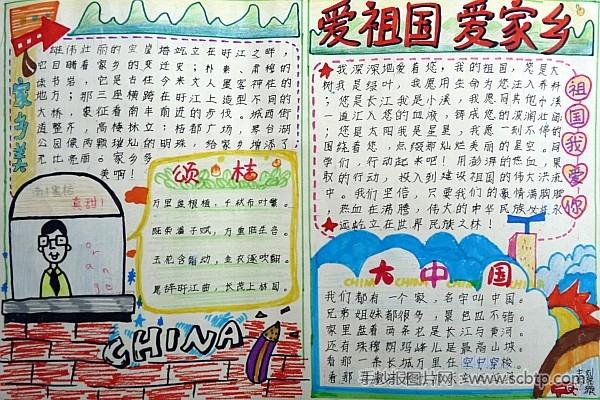 家乡美
雄伟壮丽的宝岩塔屹立在旴江之畔，
它目睹着家乡的变迁史；朴素、肃穆的
读书岩，它是古往今来文人墨客神往的
地方；那三座横跨在旴江上造型不同的
大桥，象征着南丰前进的步伐。城西街
道整齐，高楼林立；桔都广场、琴台湖
公园像两颗璀灿的明珠，给家乡增添了
无比亮丽。家乡多
美啊！
南丰蜜桔
真甜！
orange
颂桔
万里盘根植，千秋布叶繁。
既荣潘子赋，方重陆生言。
玉花含霜动，金衣逐吹翻。
愿辞旴江曲，长茂上林园。
CHINA
爱祖国 爱家乡
我深深地爱着您，我的祖国，您是大
树我是绿叶，我愿用生命为您注入养料
；您是长江我是小溪，我愿同其他小溪
一道汇入您的血液，铸成您的波澜壮阔
；您是太阳我是星星，我愿一刻不停的
围绕着您，点缀那灿烂美丽的星空。同
学们，行动起来吧！用澎湃的热血，果
敢的行动，投入到建设祖国的伟大洪流
中。我们坚信，只要我们的豪情满胸膛
，热血在沸腾，伟大的中华民族必将永
远屹立在世界民族之林！
祖国我爱你
大中国
CHINA CHINA CHINA CHINA
我们都有一个家，名字叫中国。
兄弟姐妹都很多，景色也不错。
家里盘着两条龙是长江与黄河。
还有珠穆朗玛峰儿是最高山坡。
看那一条长城万里在空中穿梭
看那
手抄报图片网 www.scbtp.com